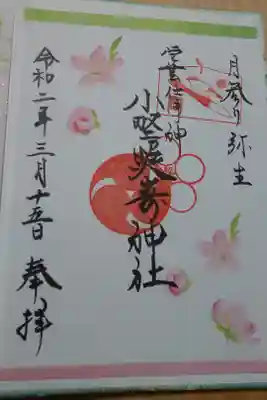 月参り 弥生
学芸仕事神
小埜照嵜神社
令和二年三月十五日 奉拝